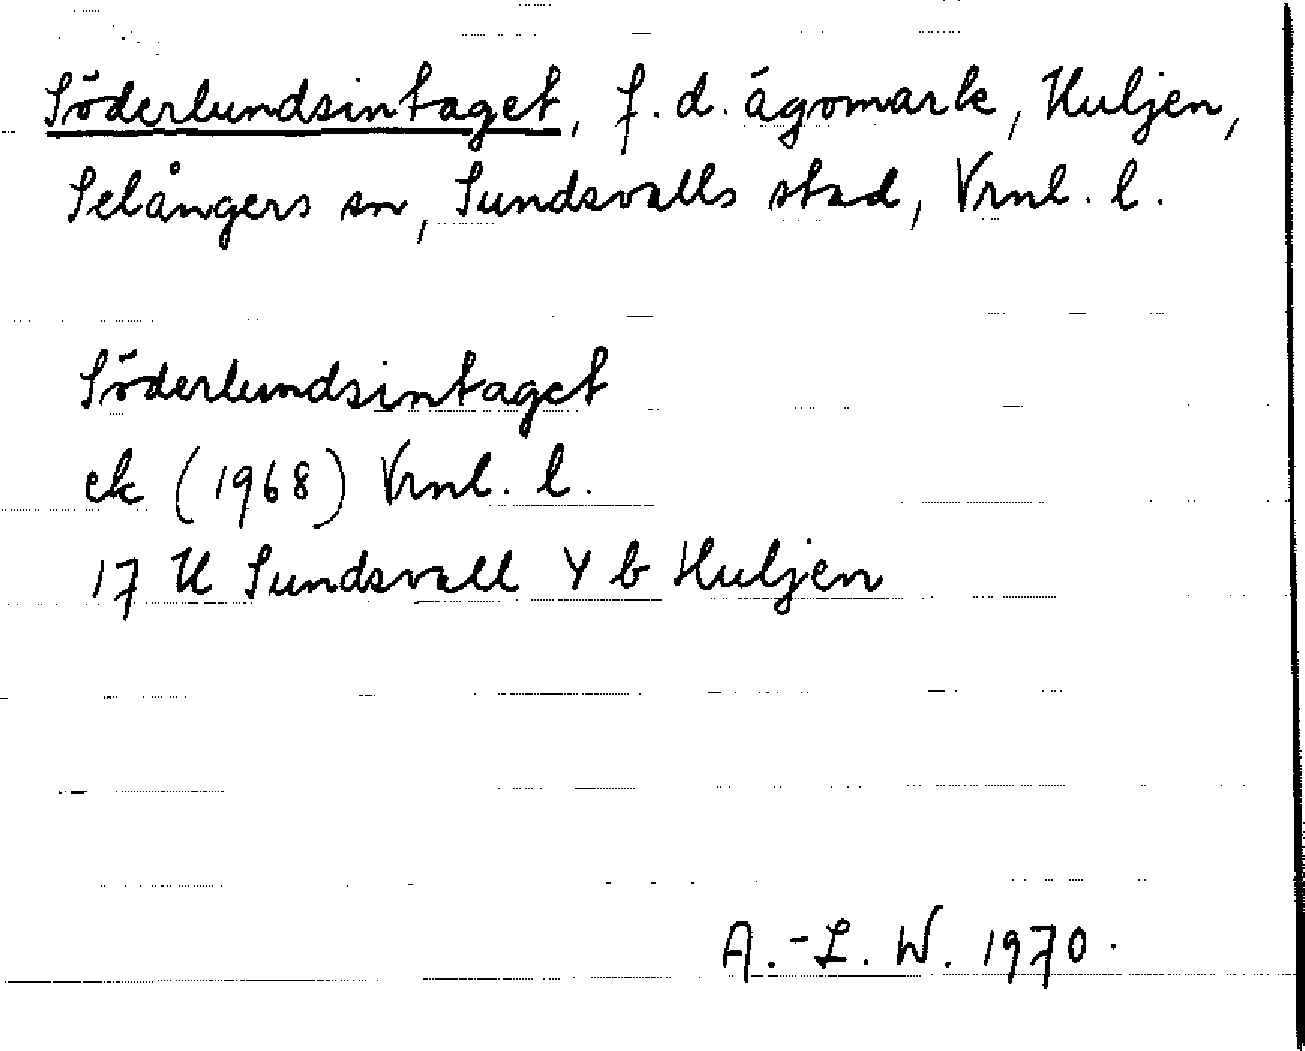 Söderlundsintaget, f.d. ägomark, Huljen,
Selångers sn, Sundsvalls stad, Vrnl. l.
Söderlundsintaget
ek (1968) Vrnl. l.
17 H Sundsvall Y b Huljen
A.-L. W. 1970.